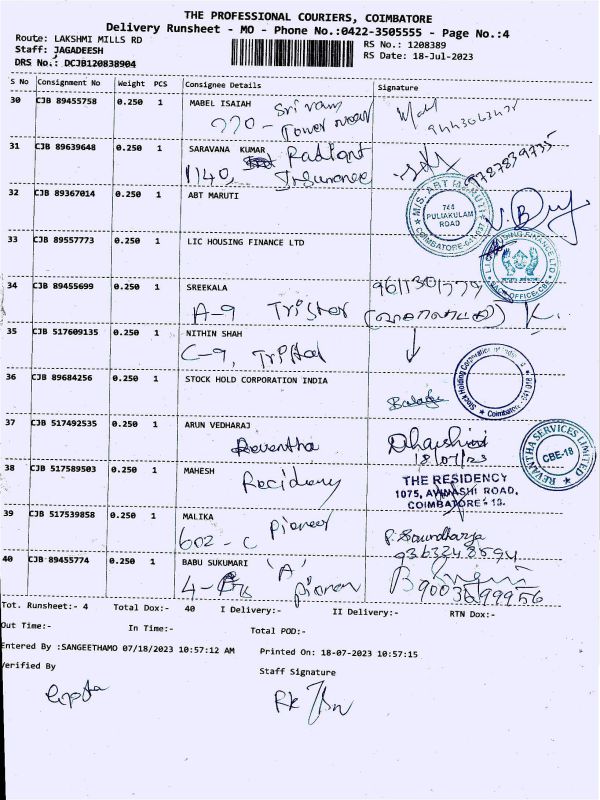 THE PROFESSIONAL COURIERS, COIMBATORE
Delivery Runsheet - MO - Phone No.:0422-3505555 - Page No.:4
Route: LAKSHMI MILLS RD
RS No.: 1208389
Staff: JAGADEESH
RS Date: 18-Jul-2023
DRS No.: DCJB120838904
S No Consignment No Weight PCS Consignee Details Signature
30 CJB 89455758 0.250 1 MABEL ISAIAH Sriram
770 - Tower
31 CJB 89639648 0.250 1 SARAVANA KUMAR Radiant
1140, Insurance 9787839735
32 CJB 89367014 0.250 1 ABT MARUTI
M/S. ABT MARUTI
744
PULIAKULAM
ROAD
COIMBATORE
33 CJB 89557773 0.250 1 LIC HOUSING FINANCE LTD
34 CJB 89455699 0.250 1 SREEKALA
A-9 Tristar
35 CJB 517609135 0.250 1 NITHIN SHAH
C-9,
36 CJB 89684256 0.250 1 STOCK HOLD CORPORATION INDIA
Stock Holding Corporation of India
Coimbatore
37 CJB 517492535 0.250 1 ARUN VEDHARAJ
Reventha
18/07/23
REVANTHA SERVICES LIMITED
CBE-18
38 CJB 517589503 0.250 1 MAHESH
Recidency
THE RESIDENCY
1075, AVINASHI ROAD,
COIMBATORE - 18.
39 CJB 517539858 0.250 1 MALIKA
602 - C pioneer
P. Soundharya
9363248594
40 CJB 89455774 0.250 1 BABU SUKUMARI 'A'
4- pioneer
9003699956
Tot. Runsheet:- 4 Total Dox:- 40 I Delivery:- II Delivery:- RTN Dox:-
Out Time:- In Time:- Total POD:-
Entered By :SANGEETHAMO 07/18/2023 10:57:12 AM Printed On: 18-07-2023 10:57:15
Verified By Staff Signature